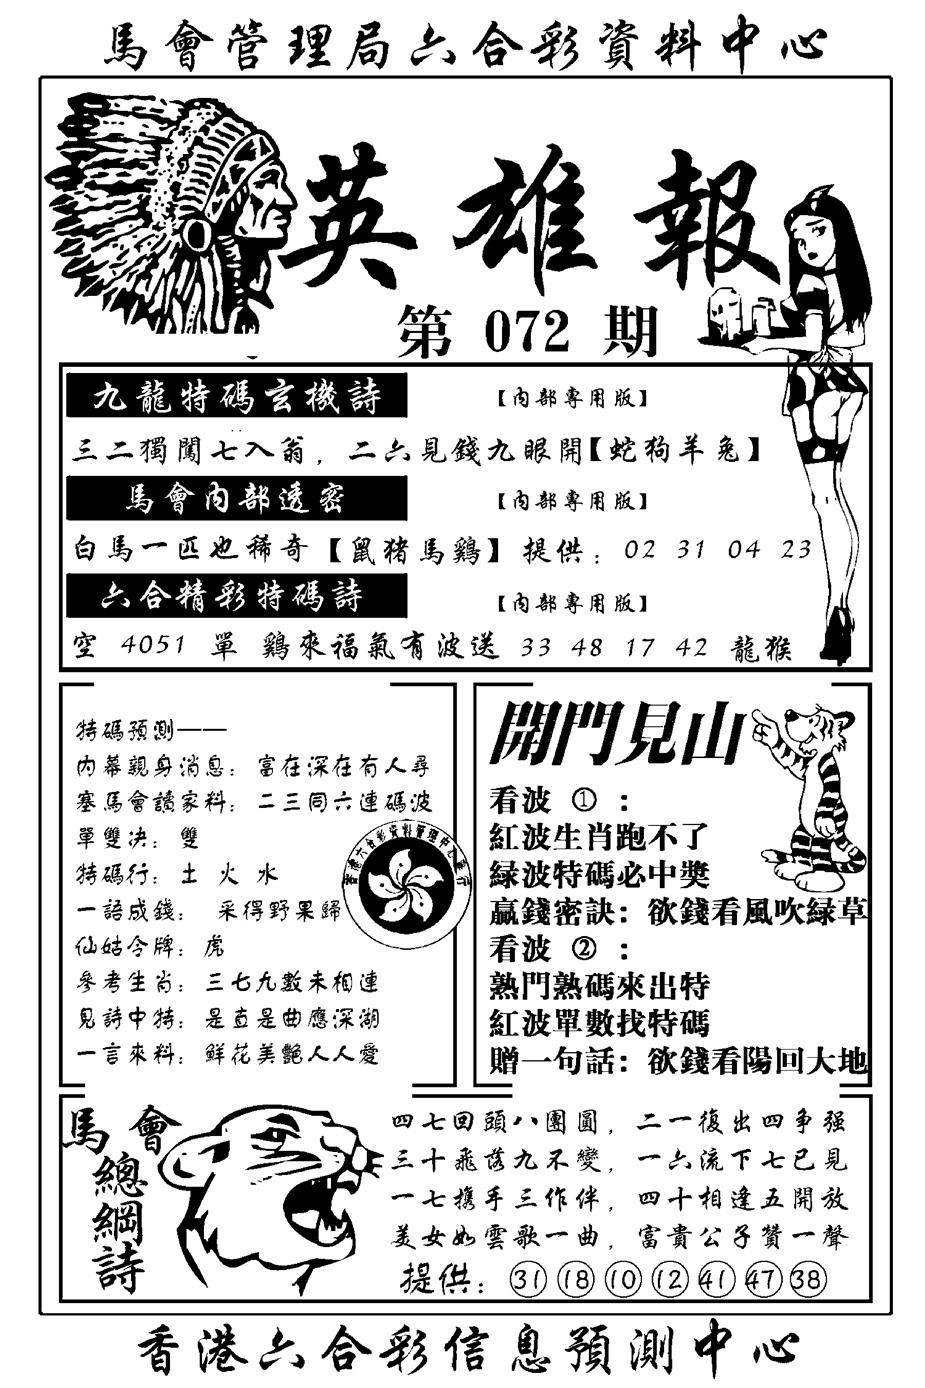 馬會管理局六合彩資料中心
英雄報
第 072 期
九龍特碼玄機詩
【內部專用版】
三二獨闖七入翁，二六見錢九眼開【蛇狗羊兔】
馬會內部透密
【內部專用版】
白馬一匹也稀奇【鼠猪馬鷄】提供：02 31 04 23
六合精彩特碼詩
【內部專用版】
空 4051 單 鷄來福氣有波送 33 48 17 42 龍猴
特碼預測——
內幕親身消息：富在深在有人尋
塞馬會讀家料：二三同六連碼波
單雙决：雙
特碼行：土 火 水
一語成錢： 采得野果歸
仙姑令牌：虎
參考生肖：三七九數未相連
見詩中特：是直是曲應深湖
一言來料：鮮花美艷人人愛
香港六合彩資料管理中心發行
開門見山
看波 ①：
紅波生肖跑不了
緑波特碼必中獎
贏錢密訣：欲錢看風吹緑草
看波 ②：
熟門熟碼來出特
紅波單數找特碼
贈一句話：欲錢看陽回大地
馬會
總綱詩
四七回頭八團圓，二一復出四争强
三十飛落九不變，一六流下七已見
一七携手三作伴，四十相逢五開放
美女如雲歌一曲，富貴公子贊一聲
提供：31 18 10 12 41 47 38
香港六合彩信息預測中心